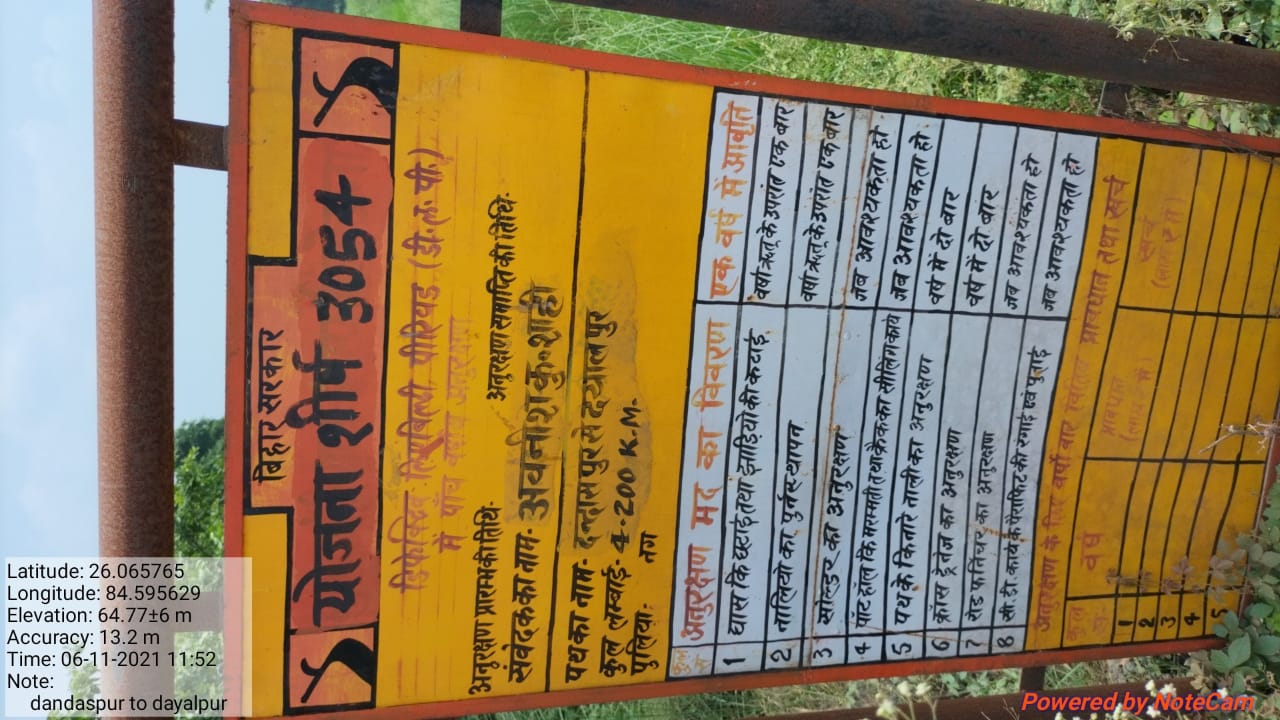 बिहार सरकार
योजना शीर्ष 3054
डिफेक्टिव लियबिल्टी पीरियड (डी॰ल॰पी॰)
में पाँच वर्षीय अनुरक्षण
अनुरक्षण प्रारम्भ की तिथि- अनुरक्षण समाप्ति की तिथि-
संवेदक का नाम- अवनीश कु॰ शाही
पथ का नाम- दन्दासपुर से दयालपुर
कुल लम्बाई- 4.200 K.M.
पुलिया: नग
अनुरक्षण मद का विवरण एक वर्ष में आवृति
1 घास कि छटाई तथा झाडियो की कटाई वर्षा ऋतु के उपरांत एक बार
2 नालियो का पुर्नस्थापन वर्षा ऋतु के उपरांत एक बार
3 सोल्डर का अनुरक्षण जब आवश्यकता हो
4 पॉट हॉल कि मरम्मती तथा क्रैक का सीलिंग कार्य जब आवश्यकता हो
5 पथ के किनारे नाली का अनुरक्षण वर्ष में दो बार
6 क्रॉस ड्रेनेज का अनुरक्षण वर्ष में दो बार
7 रोड फर्निचर का अनुरक्षण जब आवश्यकता हो
8 सी॰डी॰ कार्य के पैराफिट की रंगाई एवं पुताई जब आवश्यकता हो
अनुरक्षण के लिए वर्षो वार वित्तिय प्रावधान तथा खर्च
वर्ष प्रावधान खर्च
(लाख में)
1
2
3
4
5
Latitude: 26.065765
Longitude: 84.595629
Elevation: 64.77±6 m
Accuracy: 13.2 m
Time: 06-11-2021 11:52
Note:
dandaspur to dayalpur
Powered by NoteCam